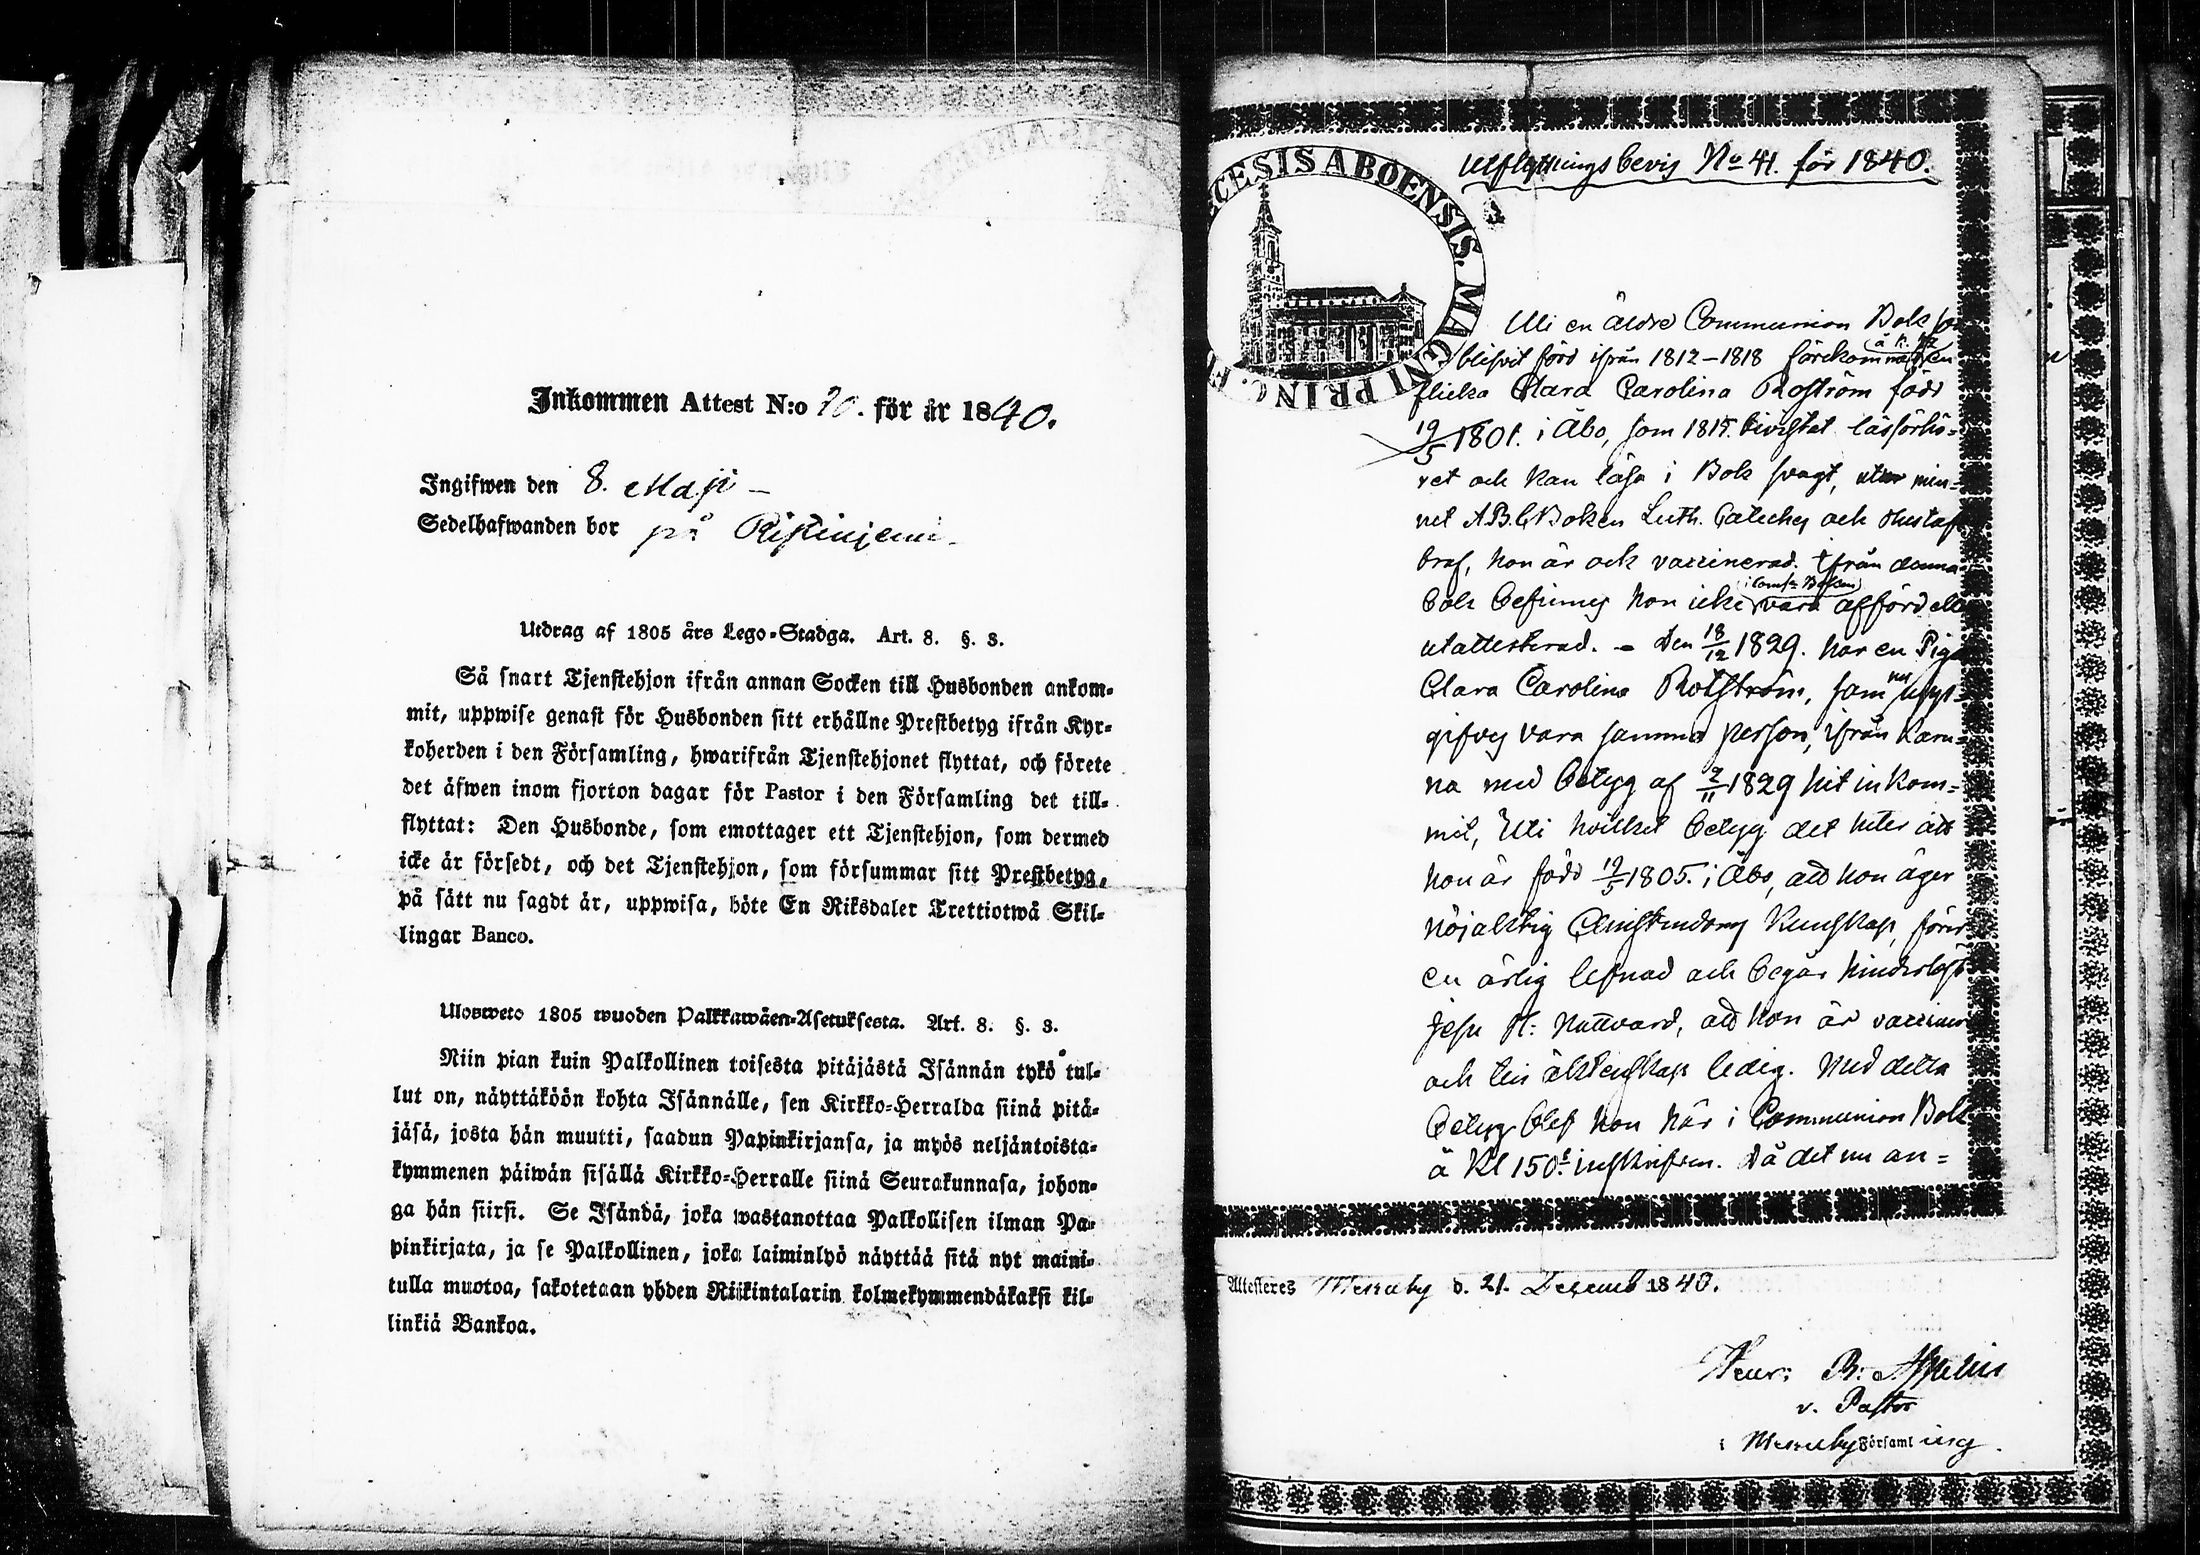 Inkommen Attest N:o 20. för år 1840.
Ingifwen den 8. Maji
Sedelhafwanden bor på
Utdrag af 1805 års Lego-Stadga. Art. 8. §. 3.
Så snart Tjenstehjon ifrån annan Socken till Husbonden ankom-
mit, uppwise genast för Husbonden sitt erhållne Prestbetyg ifrån Kyr-
koherden i den Församling, hwarifrån Tjenstehjonet flyttat, och förete
det äfwen inom fjorton dagar för Pastor i den Församling det till-
flyttat: Den Husbonde, som emottager ett Tjenstehjon, som dermed
icke är försedt, och det Tjenstehjon, som försummar sitt Prestbetyg,
på sätt nu sagdt är, uppwisa, böte En Riksdaler Trettiotwå Skil-
lingar Banco.
Ulosweto 1805 wuoden Palkkawäen-Asetuksesta. Art. 8. §. 3.
Niin pian kuin Palkollinen toisesta pitäjästä Isännän tykö tul-
lut on, näyttäköön kohta Isännälle, sen Kirkko-Herralda siinä pitä-
jäsä, josta hän muutti, saadun Papinkirjansa, ja myös neljäntoista-
kymmenen päiwän sisällä Kirkko-Herralle siinä Seurakunnasa, johon-
ga hän siirsi. Se Isändä, joka wastanottaa Palkollisen ilman Pa-
pinkirjata, ja se Palkollinen, joka laiminlyö näyttää sitä nyt maini-
tulla muotoa, sakotetaan yhden Riikintalarin kolmekymmendäkaksi kil-
linkiä Bankoa.
Utflyttningsbevis No 41. för 1840.
CESIS ABOENSIS. MAGNI PRINC. F
Uti en äldre Communion Bok som
blifvit förd ifrån 1812-1818 förekommer en
flicka Clara Carolina Roström född
19/5 1801. i Åbo, som 1815. bivistat läsförhö-
ret och kan läsa i Bok svagt, utur min-
net A.B.C Boken Luth. Cateches och Hustafl.
braf, hon är ock vaccinerad. Ifrån denna
bok befinnes hon icke vara afförd eller
utattesterad. - Den 18/12 1829. har en Piga
Clara Carolina Rotström, som nu upp-
gifves vara samma person, ifrån Karu-
na med betyg af 2/11 1829 hit inkom-
mit, Uti hvilket betyg det heter att
hon är född 19/5 1805. i Åbo, att hon äger
nöjaktig Christendoms Kunskap, förer
en ärlig lefnad och begår hinderlöst
Jesu H: Nattvard, att hon är vaccinerad
och till äktenskap ledig. Med detta
betyg blef hon här i Communion Bok
å Kl 150 inskrifven. Då det nu an=
Attesteres Merseby d. 21. Decemb 1840.
v. Pastor
i Församling.